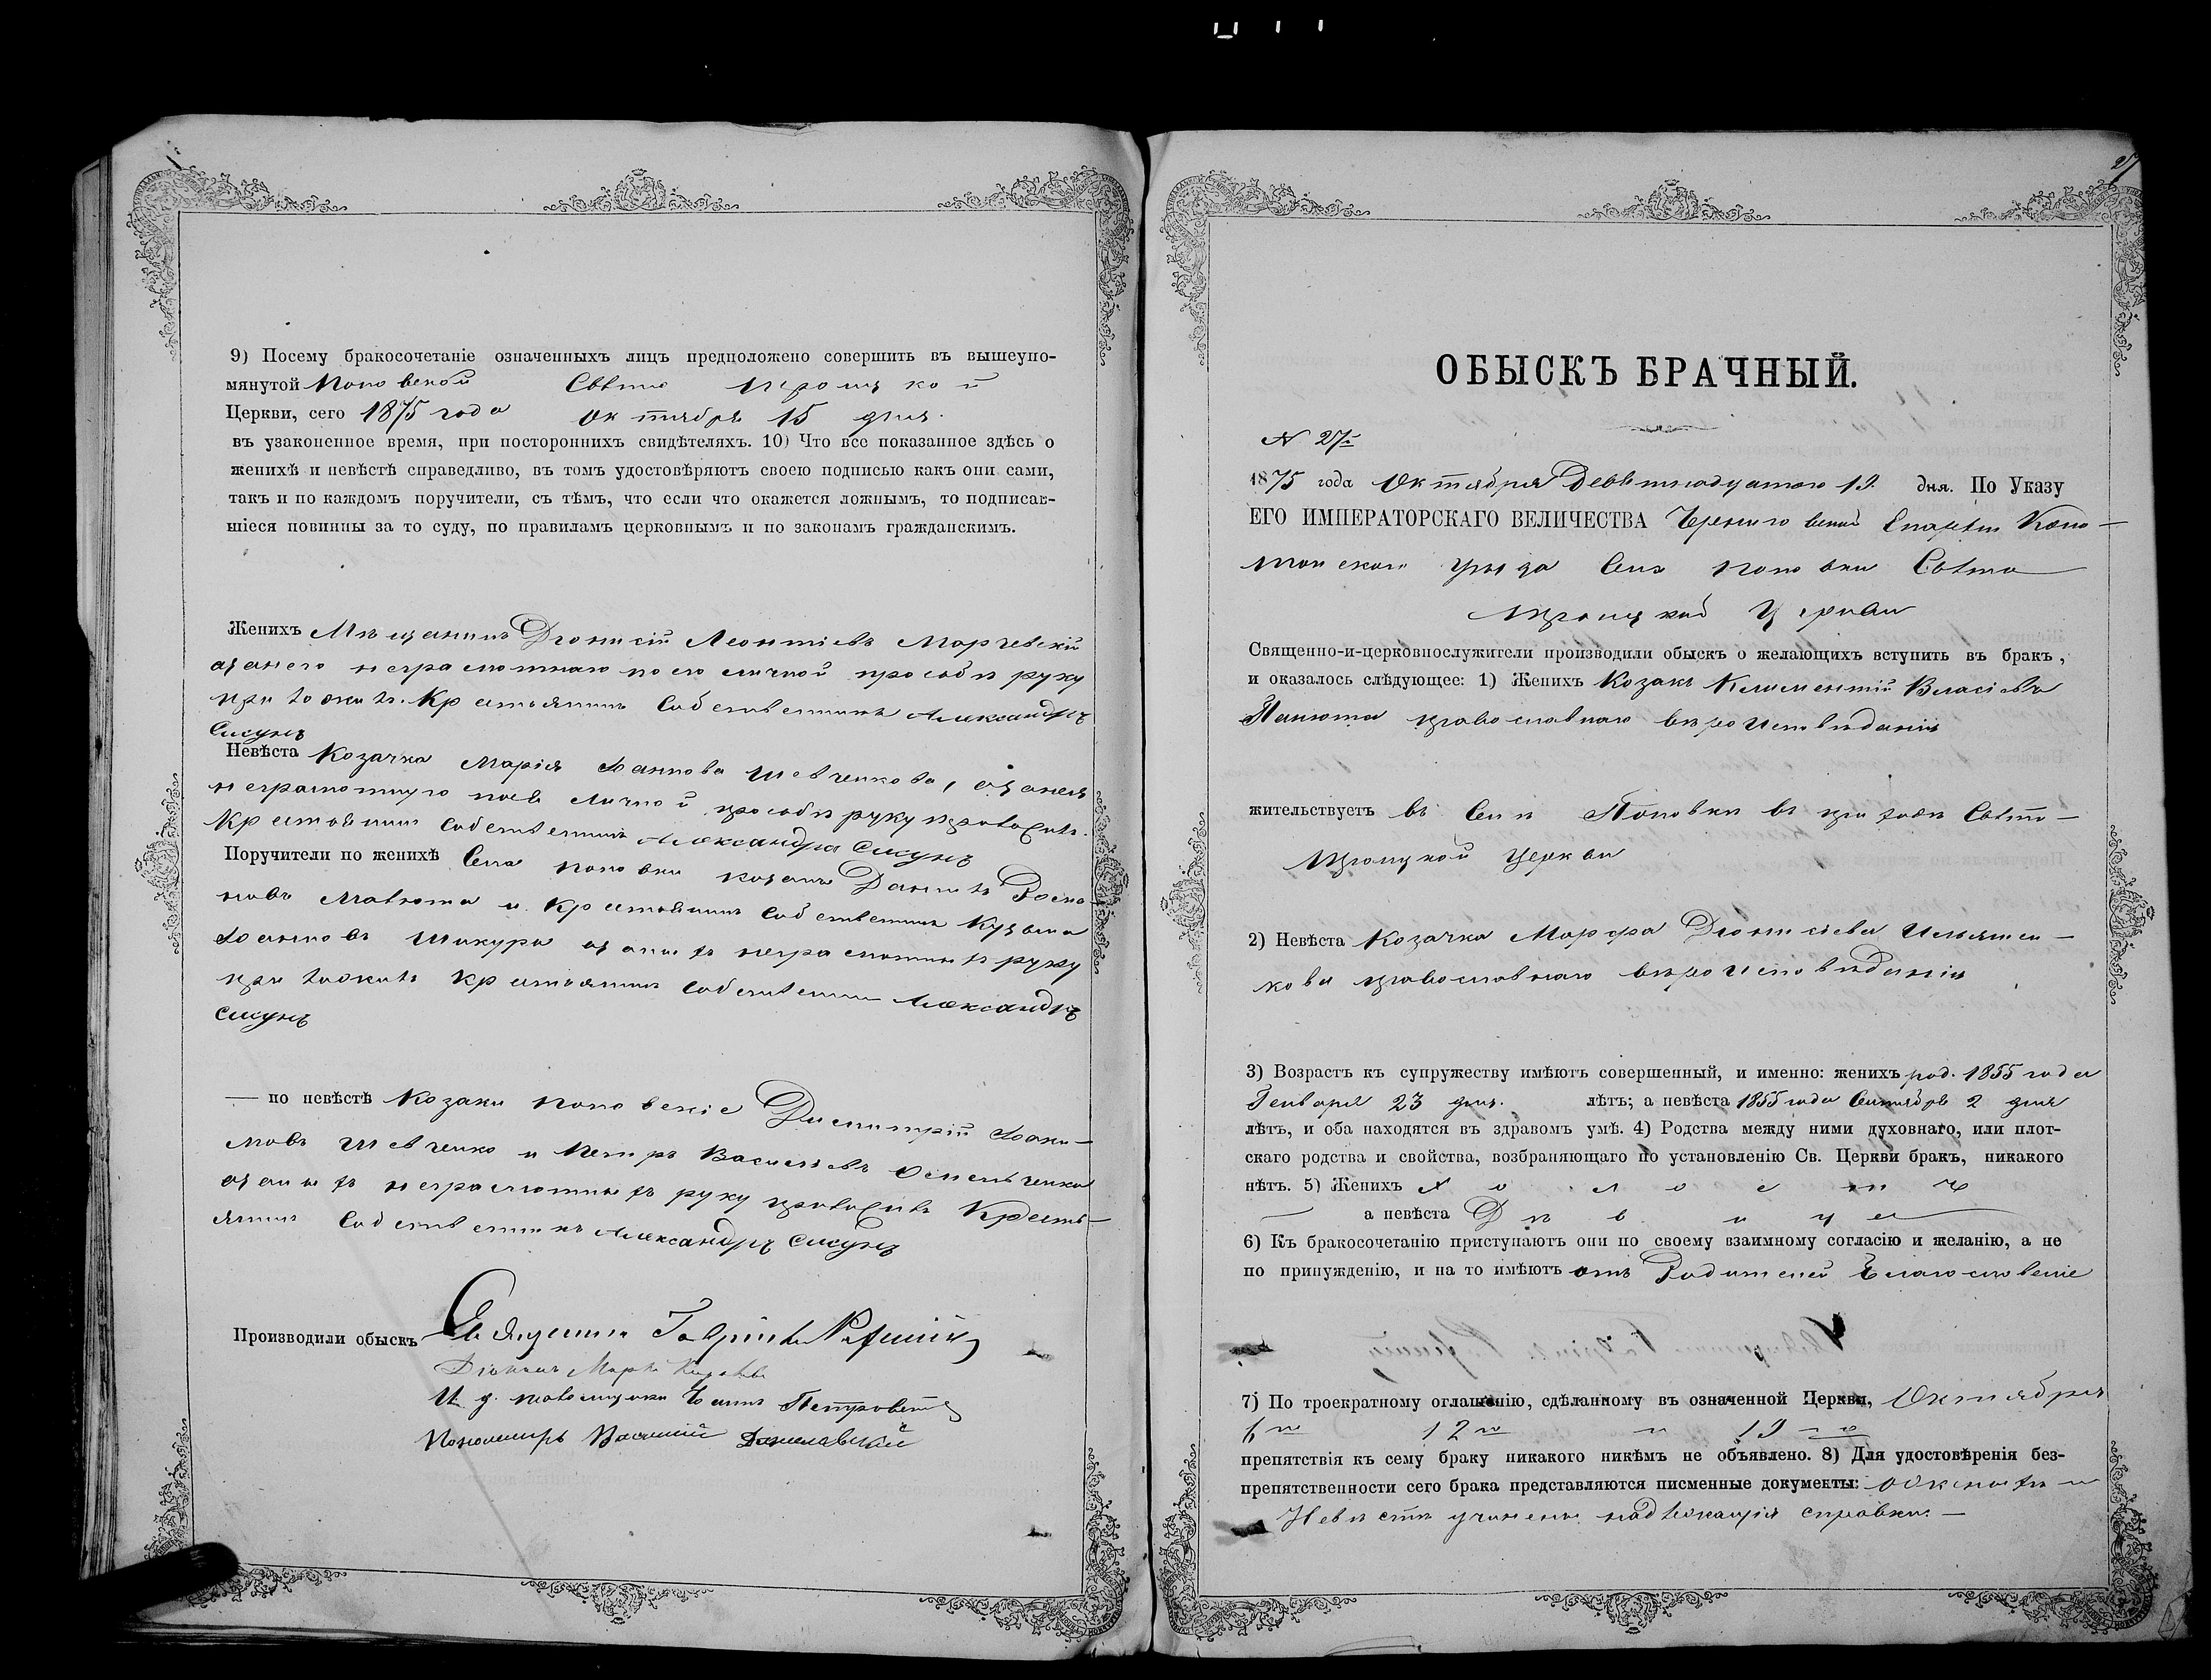 9) Посему бракосочетаніе означенныхъ лицъ предположено совершить въ вышеупо-
мянутой Поповской Свято Троицкой
Церкви, сего 1875 года Октября 15 дня.
въ узаконенное время, при постороннихъ свидѣтеляхъ. 10) Что все показанное здѣсь о
женихѣ и невѣстѣ справедливо, въ томъ удостовѣряютъ своею подписью какъ они сами,
такъ и по каждомъ поручители, съ тѣмъ, что если что окажется ложнымъ, то подписав-
шіеся повинны за то суду, по правиламъ церковнымъ и по законамъ гражданскимъ.
Женихъ Мѣщанинъ Діонисій Леонтіевъ
а за него неграмотнаго по его личной прозбѣ руку
приложилъ. Крестьянинъ Собственникъ Александръ
Сисунъ
Невѣста Козачка Марія Іоаннова Шевченкова, а за нея
неграмотную по ея личной прозбѣ руку приложилъ.
Крестьянинъ Собственникъ Александръ Сисунъ
Поручители по женихѣ Села Поповки козакъ Даніилъ
Матюта и Крестьянинъ Собственникъ Кузьма
Іоанновъ Шикура а за нихъ неграмотныхъ руку
приложилъ Крестьянинъ Собственникъ Александръ
Сисунъ
— по невѣстѣ Козаки Поповскіе Димитрій Іоаки-
мовъ Шевченко и Петръ Василіевъ Омельченко
а за нихъ неграмотныхъ руку приложилъ Кресть-
янинъ Собственникъ Александръ Сисунъ
Производили обыскъ Священникъ Гавріилъ
Діаконъ Маркъ
И. д. псаломщика Іоаннъ Петровскій
Пономарь Василій
27
ОБЫСКЪ БРАЧНЫЙ.
N 27й
1875 года Октября Девятнадцатаго 19. дня. По Указу
ЕГО ИМПЕРАТОРСКАГО ВЕЛИЧЕСТВА Черниговской Епархіи Коно-
топскаго уѣзда Села Поповки Свято
Троицкой Церкви
Священно-и-церковнослужители производили обыскъ о желающихъ вступить въ бракъ,
и оказалось слѣдующее: 1) Женихъ Козакъ Климентій Власіевъ
Панюта православнаго вѣроисповѣданія
жительствуетъ въ Селѣ Поповки въ приходѣ Свято-
Троицкой Церкви
2) Невѣста Козачка Марфа Діонисіева Ильяшен-
кова православнаго вѣроисповѣданія
3) Возрастъ къ супружеству имѣютъ совершенный, и именно: женихъ род. 1855 года
Генваря 23 дня. лѣтъ; а невѣста 1855 года Сентября 2 дня
лѣтъ, и оба находятся въ здравомъ умѣ. 4) Родства между ними духовнаго, или плот-
скаго родства и свойства, возбраняющаго по установленію Св. Церкви бракъ, никакого
нѣтъ. 5) Женихъ Холостъ
а невѣста Дѣвица
6) Къ бракосочетанію приступаютъ они по своему взаимному согласію и желанію, а не
по принужденію, и на то имѣютъ отъ Родителей благословеніе
7) По троекратному оглашенію, сдѣланному въ означенной Церкви, Октября
6го 12го и 19го
препятствія къ сему браку никакого никѣмъ не объявлено. 8) Для удостовѣренія без-
препятственности сего брака представляются писменные документы: о женихѣ и
Невѣстѣ учинены надлежащія справки. —